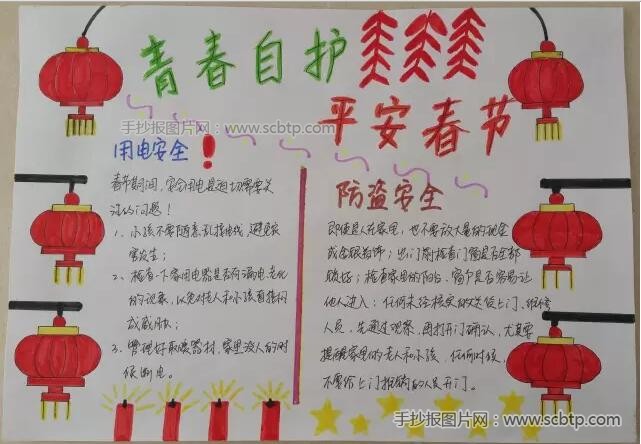 青春自护
平安春节
手抄报图片网：www.scbtp.com
用电安全！
春节期间，安全用电是迫切需要关
注的问题！
1、小孩不要随意乱接电线，避免灾
害发生；
2、检查一下家用电器是否有漏电老化
的现象，以免对老人和小孩直接构
成威胁；
3、管理好取暖器材，家里没人的时
候断电。
防盗安全
即使是人在家里，也不要放大量的现金
或金银首饰；出门前检查门窗是否全部
锁好；检查家里的阳台，窗户是否容易让
他人进入；任何未经核实的送货上门、维修
人员，先通过观察，再打开门确认，尤其要
提醒家里的老人和小孩，任何时候，
不要给上门推销的人员开门。
手抄报图片网：www.scbtp.com